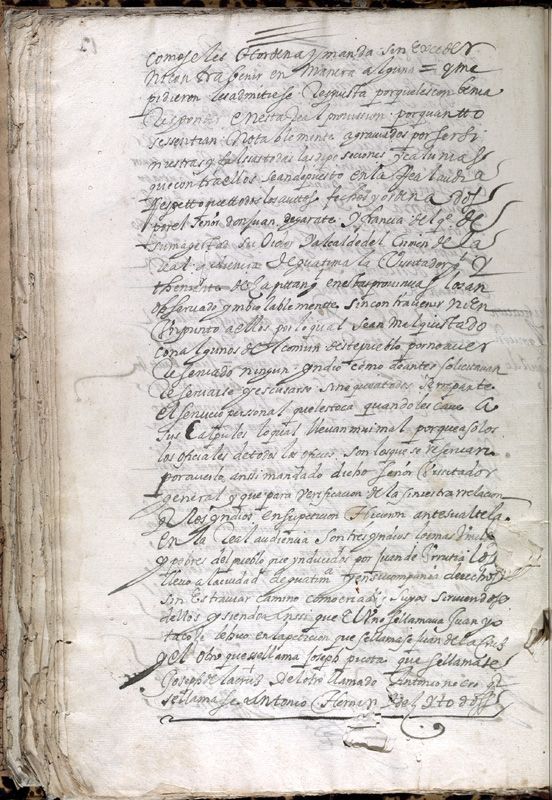 como se les hordena y manda sin exceder
ni contrabenir en manera alguna = y me
pidieron les admitiese respuesta porque les conbenia
responder en esta real provission por quantto
se sentian notablemente agraviados por ser si
niestras y falsas todas las dipo seciones y calunias
que contra ellos sean depuesto en la real audia
Respetto que ttodos los auttos fechos y ordenados
por el señor don juan de garate y francia del q° de
su magestad su oidor y alcalde del crimen de la
real audiencia de guatimala visitador g.l y
theniente de cappitan g. en estas provincias los an
observado ymbiolablemente sin contravenir ni en
un punto a ellos por lo qual sean malquistado
con algunos del comun deste pueblo por no aver
reservado ningun yndio como de antes solicitavan
reservarse y escusarse sino que a todos se reparte
el servicio personal que les toca quando les cave a
sus calpules lo qual llevan mui mal porque a solos
los oficiales de todos los oficios son los que se reservan
por averlo anssi mandado dicho señor visitador
general y que para verificacion de la siniestra relacion
q. los yndios en su peticion hicieron ante su alteza
en la real audiencia son tres yndios los mas
y pobres del pueblo que ynducidos por juan de
llevo a la ciudad de guatimª en su compania derechos
sin estraviar camino como criados suyos sirviendose
dellos y siendo anssi que el uno se llamava juan
se puso en la peticion que se llamase juan de la cruz
y el otro que se llama joseph que se llamase
joseph de la cruz y el otro llamado antonio q.
se llamase antonio hernan